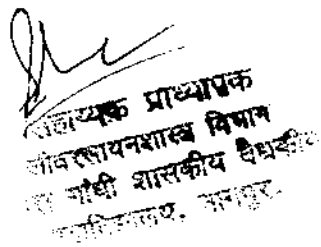 सहाय्यक प्राध्यापक
जीवरसायनशास्त्र विभाग
गांधी शासकीय वैद्यकीय
नागपुर.